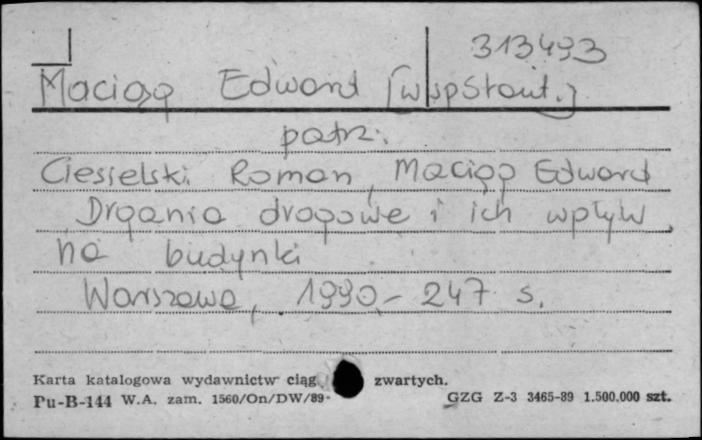 313493
Maciąg Edward [współaut.]
patrz:
Ciesielski Roman, Maciąg Edward
Drgania drogowe i ich wpływ
na budynki
Warszawa, 1990,- 247 s.
Karta katalogowa wydawnictw ciąg. zwartych.
Pu-B-144 W.A. zam. 1560/On/DW/89- GZG Z-3 3465-89 1.500.000 szt.